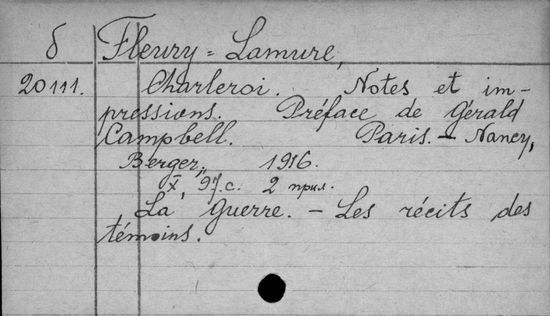 б Fleury-Lamure,
20111. Charleroi. Notes et im-
pressions. Préface de Gérald
Campbell. Paris. - Nancy,
Berger, 1916.
X, 97 c. 2 прил.
La Guerre. - Les récits des
témoins.